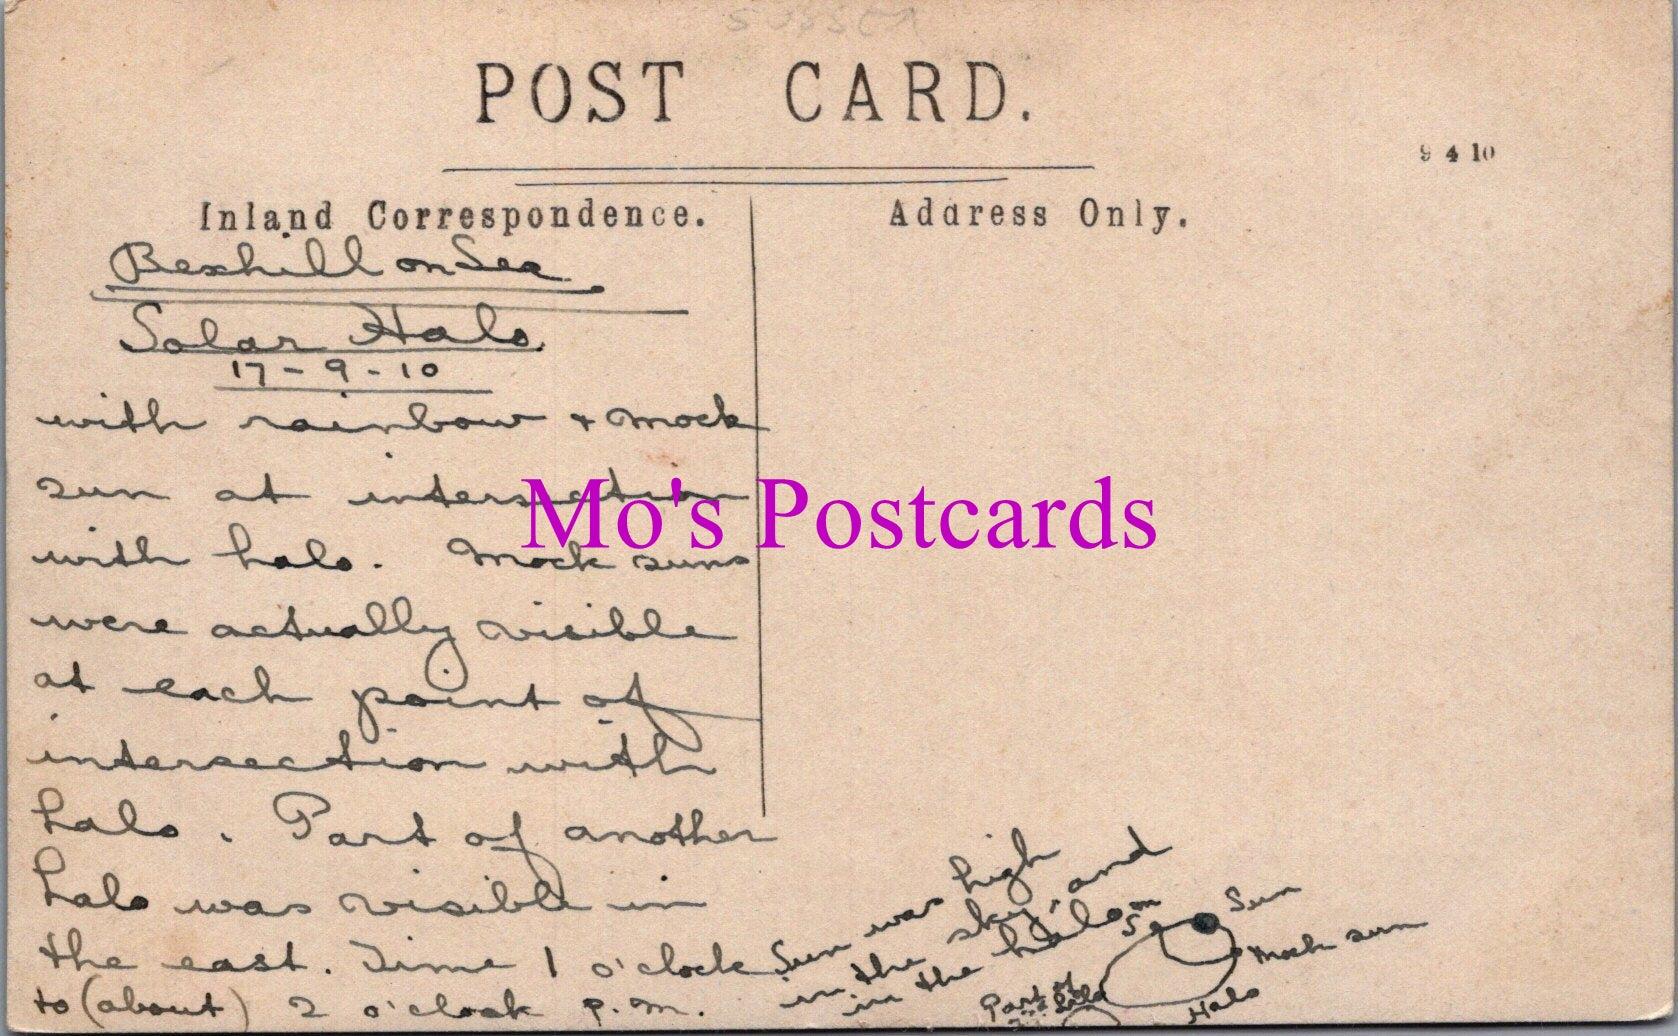 POST CARD.
9 4 10
Inland Correspondence.
Address Only.
Bexhill on Sea
Solar Halo
17-9-10
with rainbow + mock
sun at intersection
with halo. Mock suns
were actually visible
at each point of
intersection with
halo. Part of another
halo was visible in
the east. Time 1 o'clock
to (about) 2 o'clock p.m.
Sun was high
in the sky, and
in the halo
Sun
Mock sun
Halo
Part of
halo
Mo's Postcards